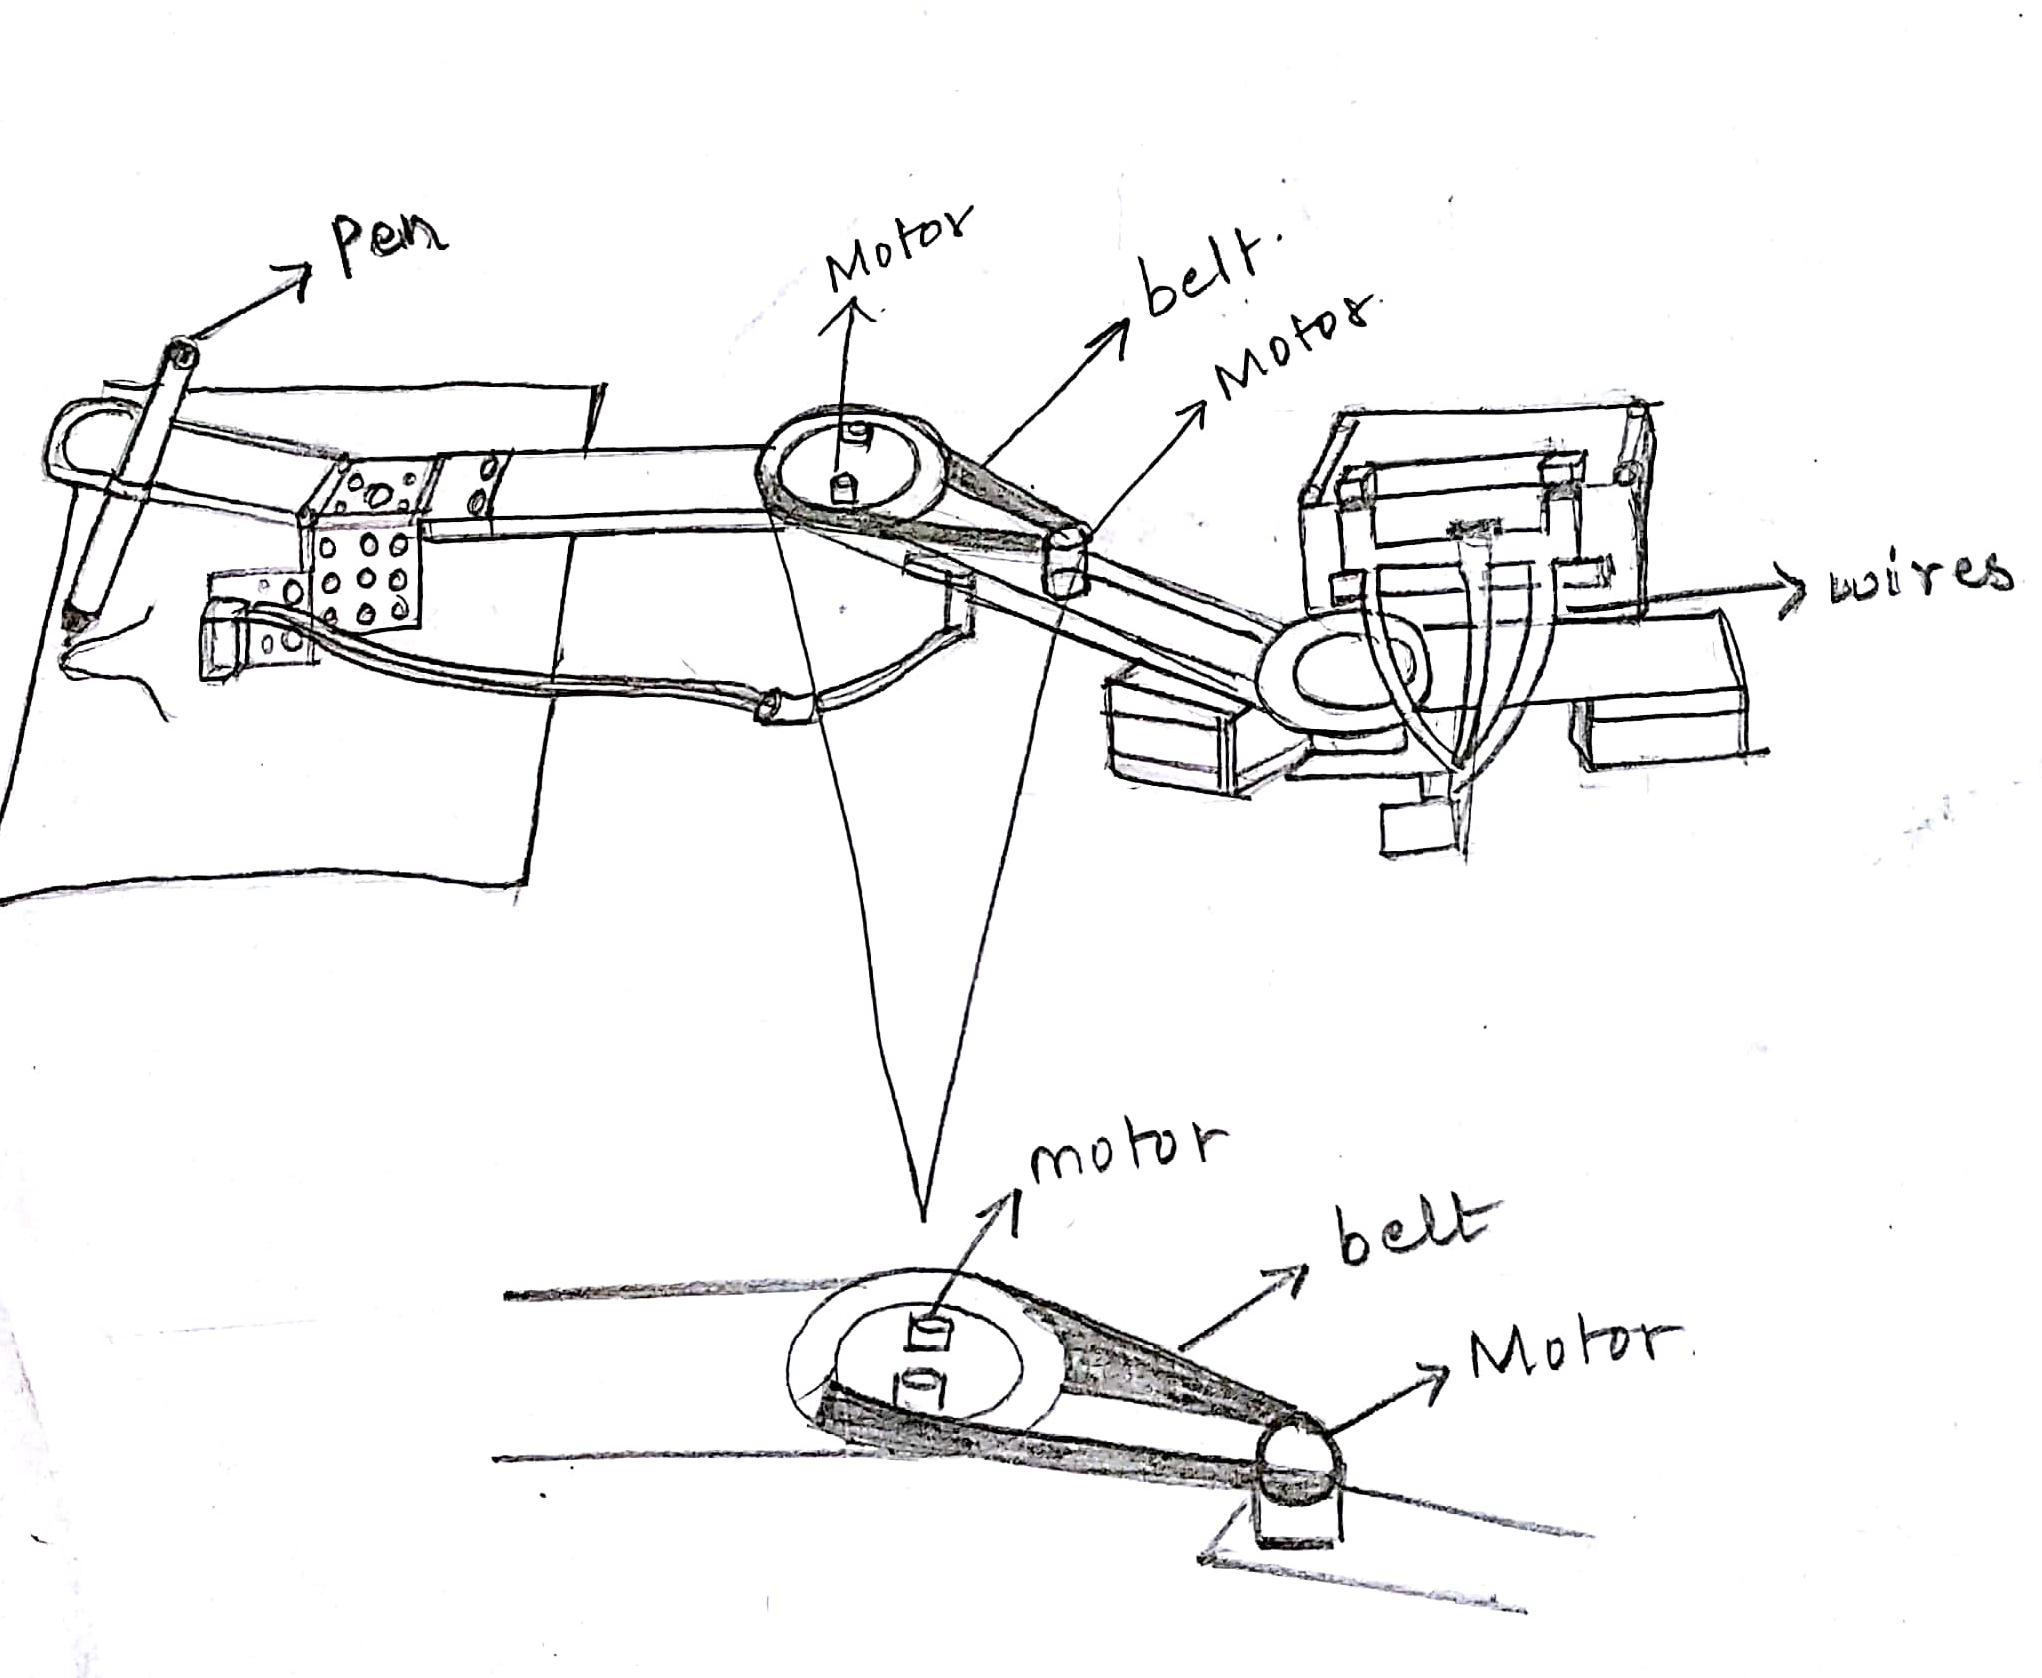 Pen
Motor
belt.
Motor.
wires
motor
belt
Motor.